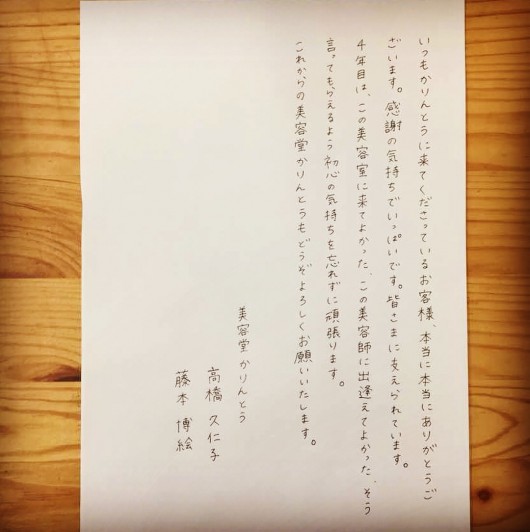 いつもかりんとうに来てくださっているお客様、本当に本当にありがとうご
ざいます。感謝の気持ちでいっぱいです。皆さまに支えられています。
4年目は、この美容室に来てよかった、この美容師に出逢えてよかった、そう
言ってもらえるよう初心の気持ちを忘れずに頑張ります。
これからの美容堂かりんとうもどうぞよろしくお願いいたします。
美容堂かりんとう
高橋 久仁子
藤本 博絵